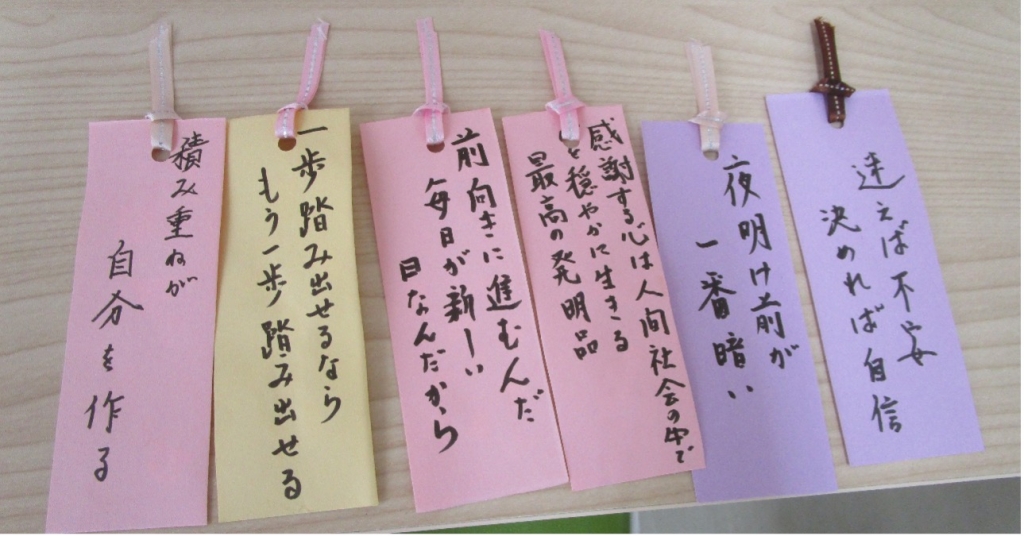 迷えば不安
決めれば自信
夜明け前が
一番暗い
感謝する心は人間社会の中で
を穏やかに生きる
最高の発明品
前向きに進むんだ
毎日が新しい
日なんだから
一歩踏み出せるなら
もう一歩踏み出せる
積み重ねが
自分を作る